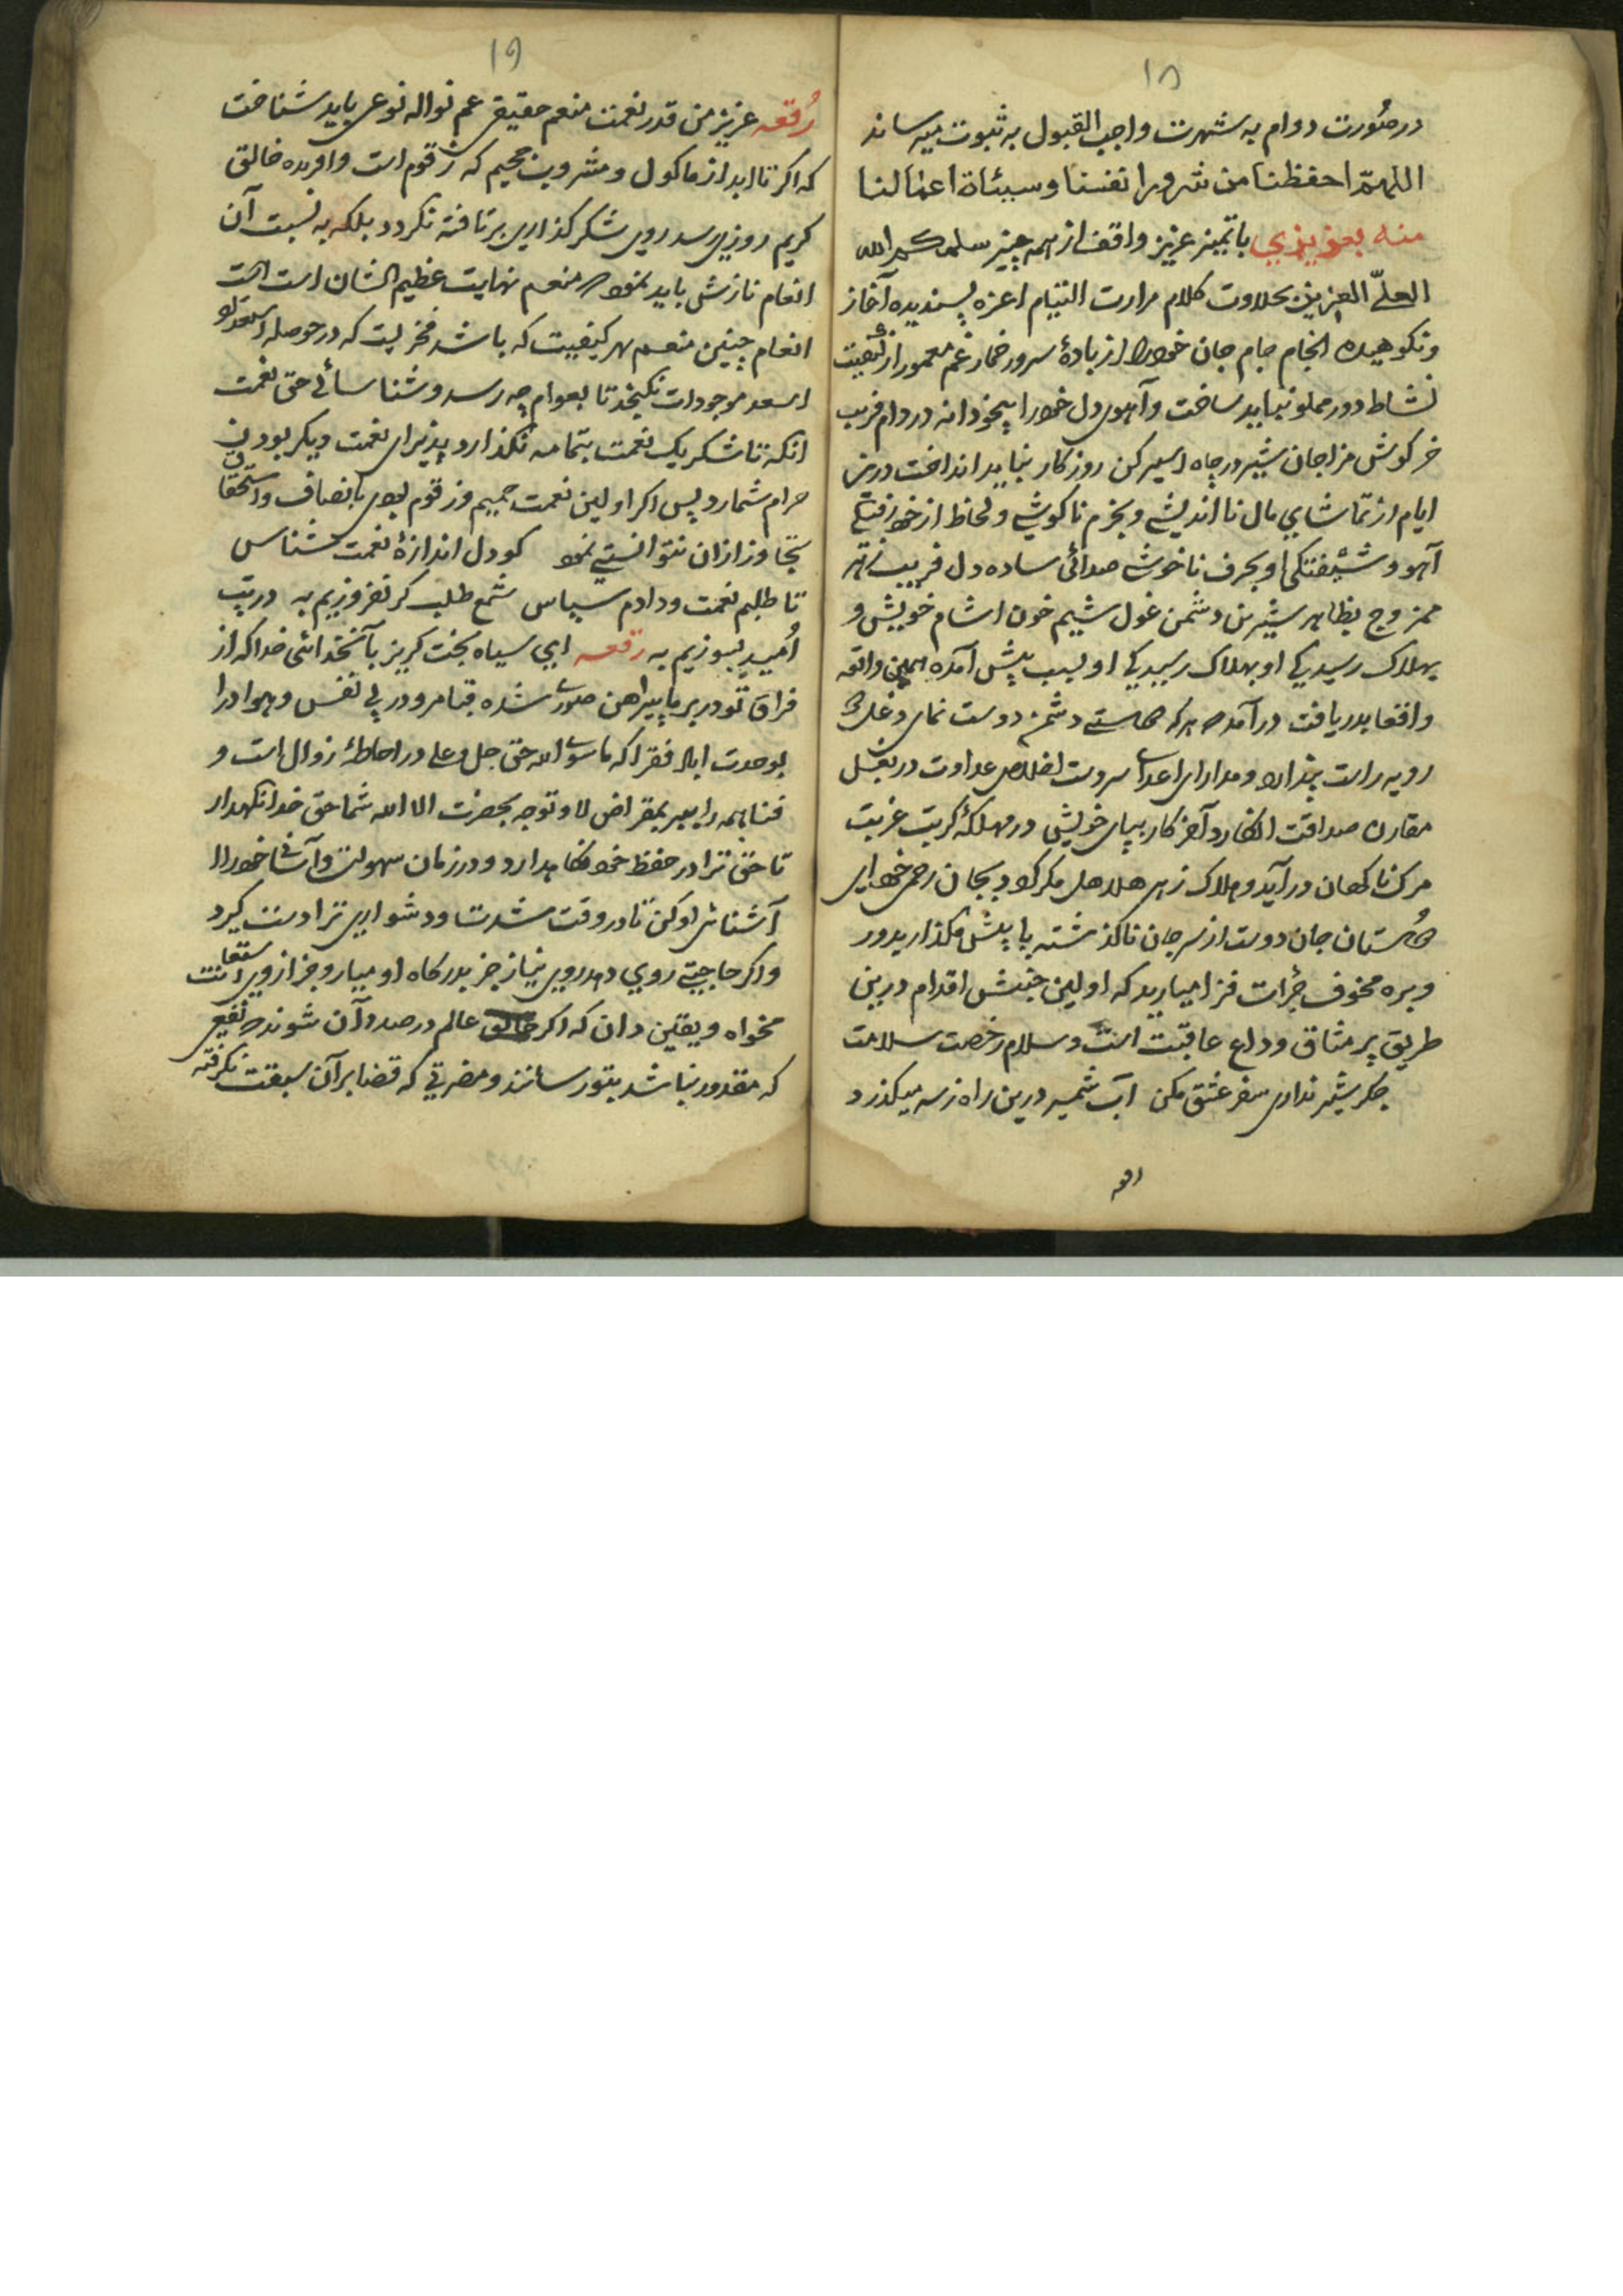 ۱۸
در صُورت دوام به شهرت واجب القبول به ثبوت میرساند
اللهمّ احفظنا من شرور انفسنا و سیئاة اعمالنا
منه بعزیزي باتمیز عزیز واقف از همه چیز سلمکم الله
العلّی العزیز بحلاوت کلام مرارت التیام اعزه پسندیده آغاز
ونکوهیده انجام جام جان خود را از بادهٔ سرور خمار غم معمور از کیفیت
نشاط دور مملو نباید ساخت و آهوی دل خود را بیخودانه در دام فریب
خرکوش مزاجان شیر در چاه اسیر کن روزکار نباید انداخت درین
ایام از تماشاي مال نا اندیشے و بخرم ناکوشے ولحاظ از خود رفتکے
آهو و شیفتکی او بحرف ناخوش صدائی ساده دل فریب زهر
ممزوج بظاهر شیرین دشمن غول شیم خون اشام خویش و
بهلاک رسیدیکے او بهلاک رسیدیکے او بسبب پیش آمده همین واقعه
واقعا بدریافت درآمد هر که دوستے دشمن دوست نمای دغل
رویه راست پندارد و مدارای اعداے سروست اخلاص عداوت در بغل
مقارن صداقت انکارد آخر کار بپای خویش در مهلکهٔ کربت غربت
مرک ناکهان درآید و هلاک زهر هلاهل مرک کردد بجان رحمی خود ای
دوستان جان دوست از سر جان ناکذشته پا پیش مکذارید و در
وبره مخوف جرٔات فرا میارید که اولین جنبش اقدام درین
طریق پر مشاق وداع عاقبت است و سلام رخصت سلامت
جکر شیر نداری سفر عشق مکن آب شمشیر درین راه ز سر میکذرد
رقعه
۱۹
رُقعه عزیز من قدر نعمت منعم حقیقی عم نواله نوعی باید شناخت
که اکر تا ابد از ماکول و مشروب جحیم که زقوم است و آفریده خالق
کریم روزی رسد روی شکر کذاری برتافته نکردد بلکه به نسبت آن
انعام نازش باید نمود منعم نهایت عظیم الشان است است
انعام چنین منعم بهر کیفیت که باشد فخریست که در حوصله استعداد
اسعد موجودات نکنجد تا بعوام چه رسد و شناسائے حق نعمت
انکه تا شکر یک نعمت بتمامه نکذارد پذیرای نعمت دیکر بودن
حرام شمارد پس اکر اولین نعمت حمیم و زقوم بود بانصاف و استحقاق
تجاوز ازان نتوانستے نمود کو دل اندازهٔ نعمت شناس
تا طلبم نعمت و دادم سپاس شمع طلب کر نفروزیم به در تپ
اُمید بسوزیم به رقعه ایي سیاه بخت کریز پا آنخدائی خدا که از
فراق تو در بر ما پیراهن صبوری شده قبا مرو در پی نفس و هوا درا
بوحدت ابا فقرا که ماسوے الله حق جل و علی در احاطهٔ زوال است و
فنا همه را ببر بمقراض لا و توجه بحضرت الا الله شما حق خدا نکهدار
تا حق ترا در حفظ خود نکاهدارد و در زمان سهولت و آسانی خود را
آشناش او کن تا در وقت شدت و دشواری ترا دست کیرد
واکر حاجتے روي دهد روی نیاز جز بدرکاه او میار و جز از وی استعانت
مخواه و یقین دان که اکر خالق عالم در صدد آن شوند نفعی
که مقدور نباشد بتو رسانند و مضرتی که قضا بر آن سبقت نکرفته